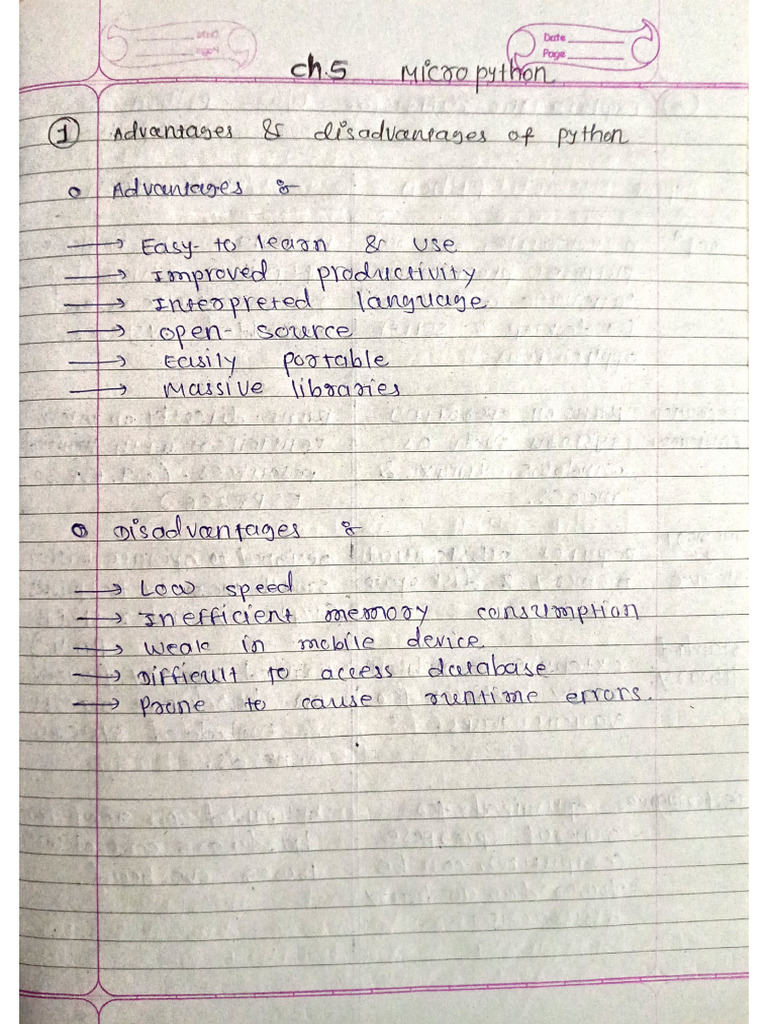 Date
Page
Ch.5 Micropython
1 Advantages & disadvantages of python
Advantages :-
→ Easy-to learn & use
→ Improved productivity
→ Interpreted language
→ open-source
→ Easily portable
→ Massive libraries
Disadvantages :
→ Low speed
→ Inefficient memory consumption
→ Weak in mobile device
→ Difficult to access database
→ Prone to cause runtime errors.